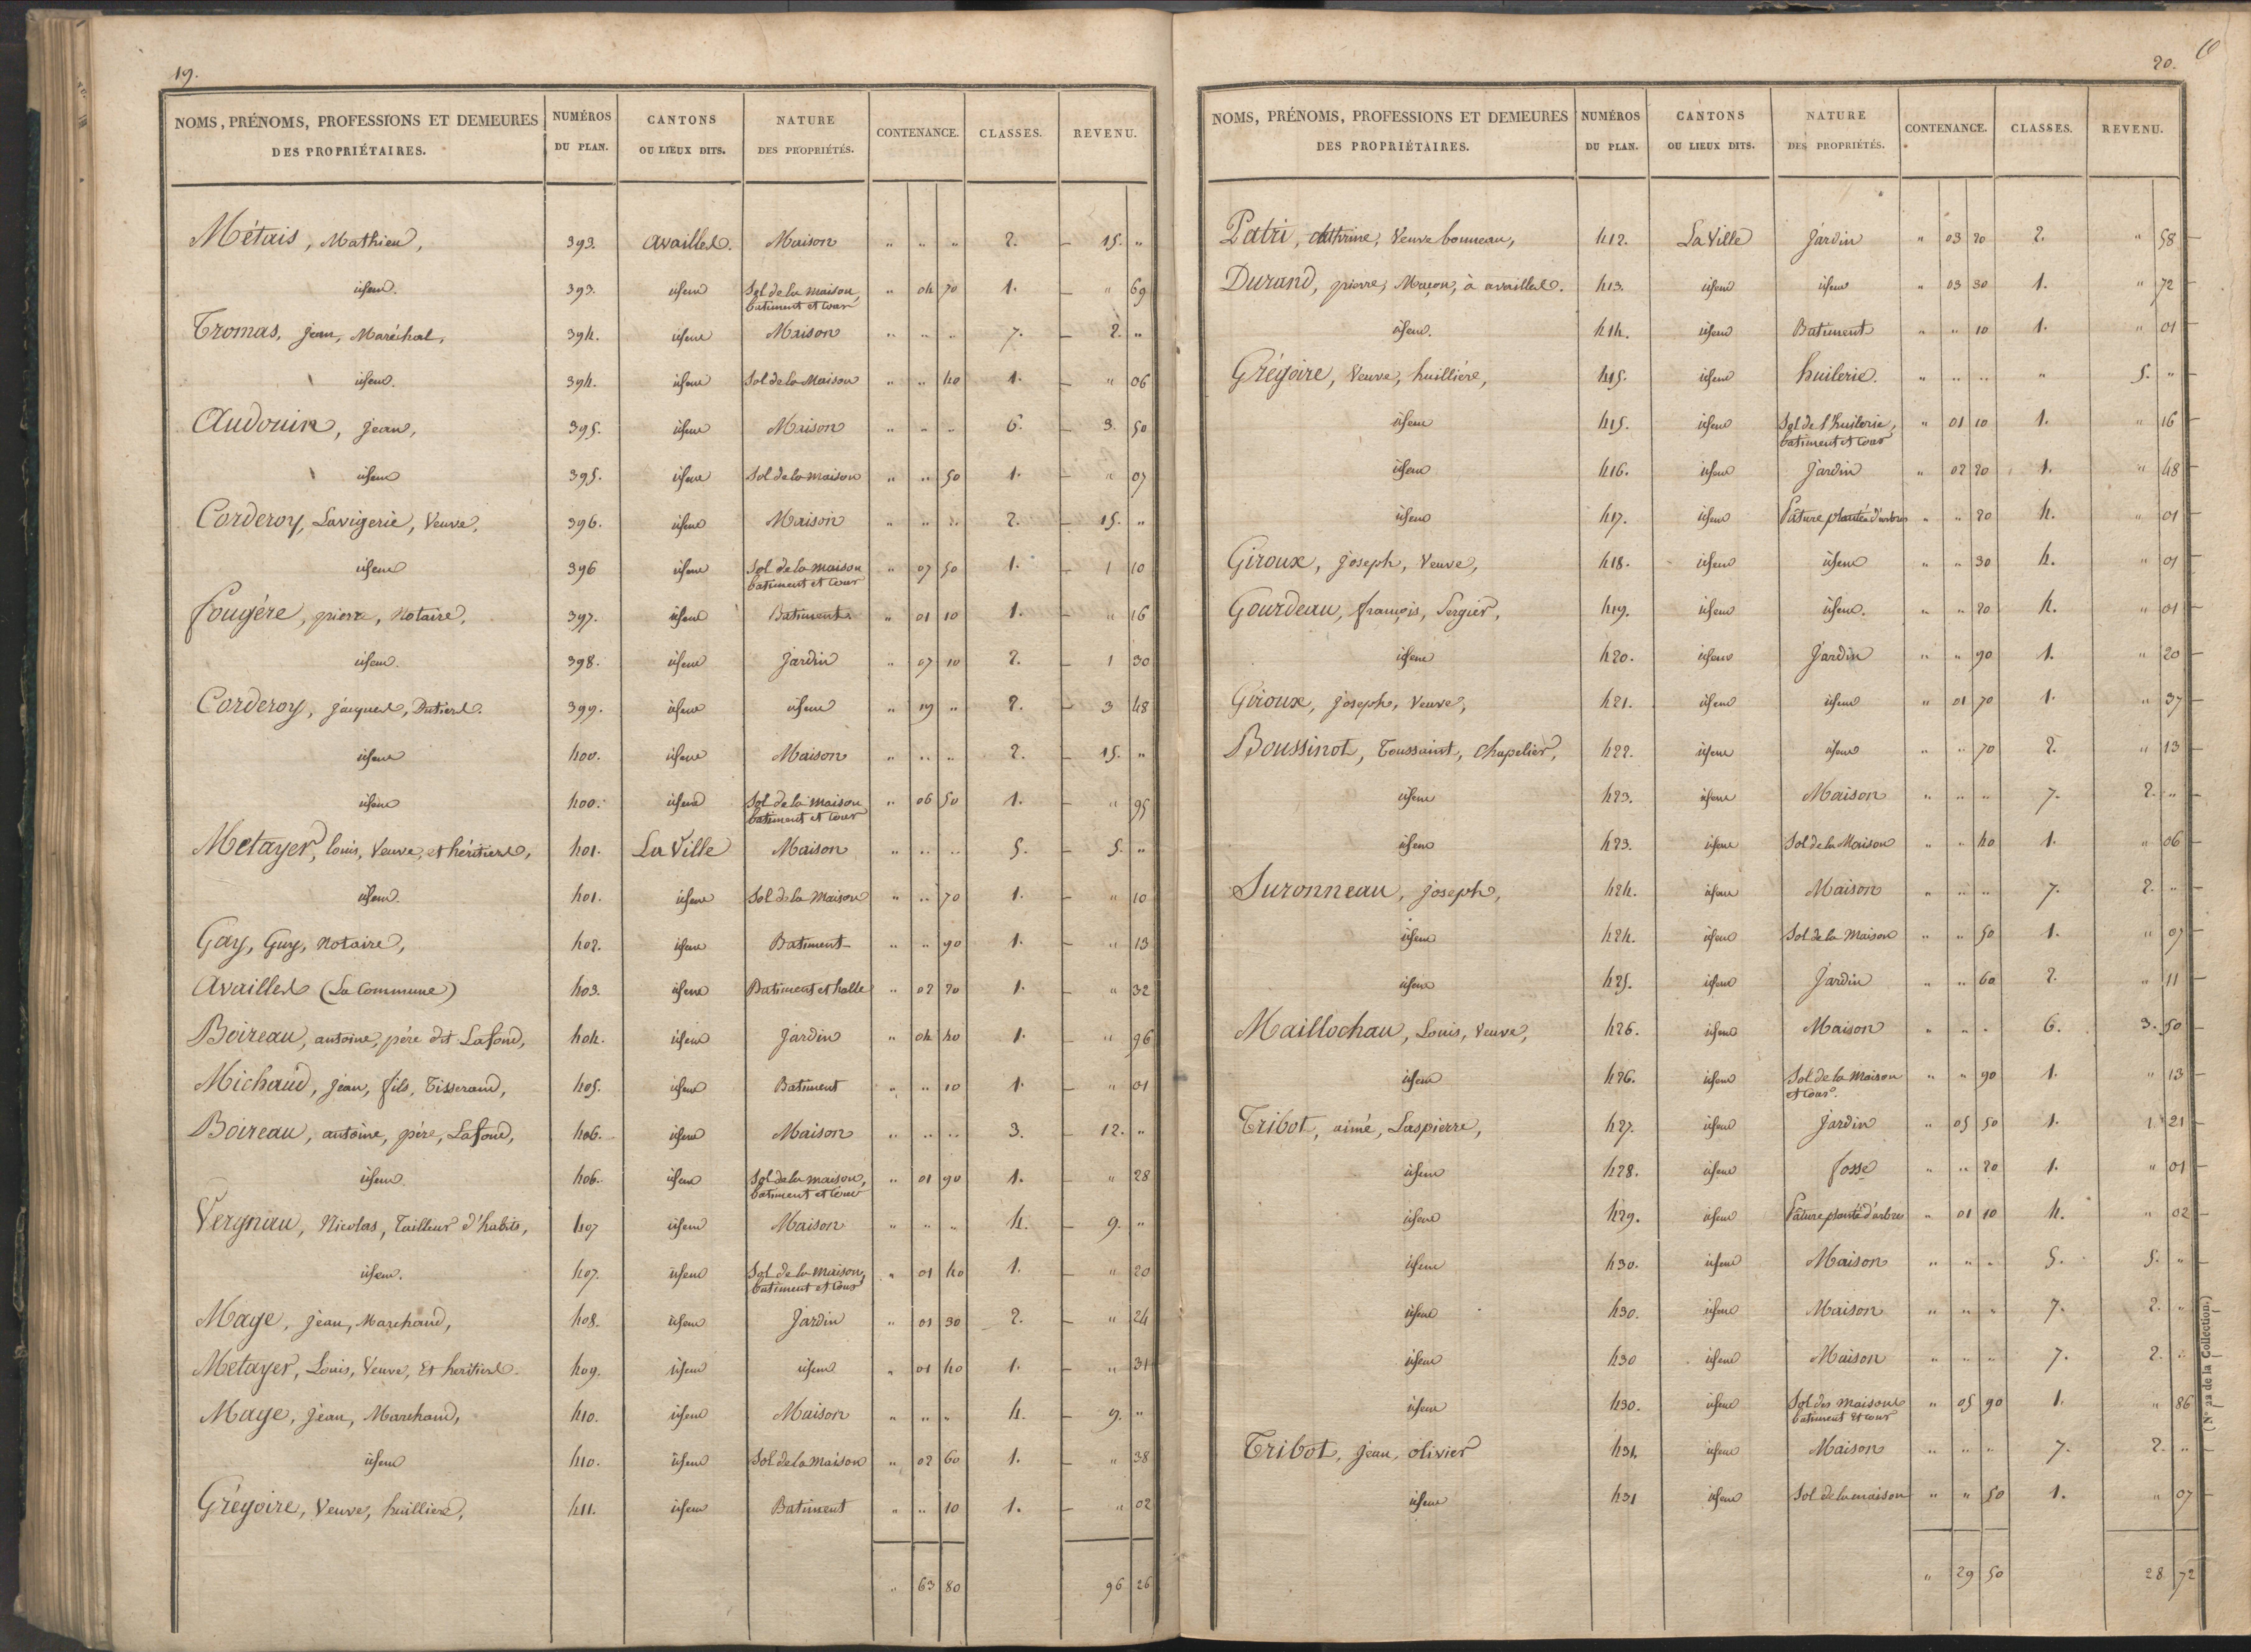 19.
NOMS, PRÉNOMS, PROFESSIONS ET DEMEURES DES PROPRIÉTAIRES. NUMÉROS DU PLAN. CANTONS OU LIEUX DITS. NATURE DES PROPRIÉTÉS. CONTENANCE. CLASSES. REVENU.
Métais, Mathieu, 393. availles. Maison " " " 2. 15. "
idem. 393. idem Sol de la maison, batiment et cour " 04 70 1. " 69
Tromas, jean, Maréchal, 394. idem Maison " " " 7. 2. "
idem. 394. idem Sol de la Maison " " 40 1. " 06
Audouin, jean, 395. idem Maison " " " 6. 3. 50
idem 395. idem Sol de la maison " " 50 1. " 07
Corderoy, Lavigerie, Veuve, 396. idem Maison " " " 2. 15. "
idem 396 idem Sol de la maison batiment et cour " 07 50 1. 1 10
fougére, pierre, Notaire, 397. idem Batiment " 01 10 1. " 16
idem. 398. idem Jardin " 07 10 2. 1 30
Corderoy, jacques, Dutiers. 399. idem idem " 19 " 2. 3 48
idem 400. idem Maison " " " 2. 15. "
idem 400. idem Sol de la maison batiment et cour " 06 50 1. " 95
Metayer, louis, Veuve, et héritiers, 401. La Ville Maison " " " 5. 5. "
idem. 401. idem Sol de la Maison " " 70 1. " 10
Gay, Guy, Notaire, 402. idem Batiment " " 90 1. " 13
Availles (La Commune) 403. idem Batiment et halle " 02 20 1. " 32
Boireau, antoine, pére dit Lafond, 404. idem Jardin " 04 40 1. " 96
Michaud, jean, fils, Tisserand, 405. idem Batiment " " 10 1. " 01
Boireau, antoine, pére, Lafond, 406. idem Maison " " " 3. 12. "
idem 406. idem Sol de la maison, batiment et cour " 01 90 1. " 28
Vergnau, Nicolas, Tailleur d'habits, 407 idem Maison " " " 4. 9. "
idem. 407. idem Sol de la maison, batiment et cour " 01 40 1. " 20
Maye, jean, Marchand, 408. idem Jardin " 01 30 2. " 24
Metayer, Louis, Veuve, et heritiers. 409. idem idem " 01 40 1. " 31
Maye, jean, Marchand, 410. idem Maison " " " 4. 9. "
idem 410. idem Sol de la maison " 02 60 1. " 38
Grégoire, Veuve, huilliere, 411. idem Batiment " " 10 1. " 02
" 63 80 96 26
20.
NOMS, PRÉNOMS, PROFESSIONS ET DEMEURES DES PROPRIÉTAIRES. NUMÉROS DU PLAN. CANTONS OU LIEUX DITS. NATURE DES PROPRIÉTÉS. CONTENANCE. CLASSES. REVENU.
Patri, Veuve bonneau, 412. La Ville Jardin " 03 20 2. " 58
Durand, pierre, Maçon, à availles. 413. idem idem " 03 30 1. " 72
idem. 414. idem Batiment " " 10 1. " 01
Grégoire, Veuve, huilliére, 415. idem huilerie. " " " " 5. "
idem 415. idem Sol de l'huilerie, batiment et cour " 01 10 1. " 16
idem 416. idem Jardin " 02 20 1. " 48
idem 417. idem Pâture plantée d'arbres " " 20 4. " 01
Giroux, joseph, Veuve, 418. idem idem " " 30 4. " 01
Gourdeau, françois, Sergier, 419. idem idem. " " 20 4. " 01
idem 420. idem Jardin " " 90 1. " 20
Giroux, joseph, Veuve, 421. idem idem " 01 70 1. " 37
Boussinot, Toussaint, Chapelier, 422. idem idem " " 70 2. " 13
idem 423. idem Maison " " " 7. 2. "
idem 423. idem Sol de la Maison " " 40 1. " 06
Suronneau, joseph, 424. idem Maison " " " 7. 2. "
idem 424. idem Sol de la Maison " " 50 1. " 07
idem 425. idem Jardin " " 60 2. " 11
Maillochau, Louis, Veuve, 426. idem Maison " " " 6. 3. 50
idem 426. idem Sol de la Maison et cour. " " 90 1. " 13
Tribot, aimé, Laspierre, 427. idem Jardin " 05 50 1. 1 21
idem 428. idem fosse " " 20 1. " 01
idem 429. idem Pâture planté d'arbres " 01 10 4. " 02
idem 430. idem Maison " " " 5. 5. "
idem 430. idem Maison " " " 7. 2. "
idem 430 idem Maison " " " 7. 2. "
idem 430. idem Sol des maisons batiment et cour " 05 90 1. " 86
Tribot, jean, olivier 431. idem Maison " " " 7. 2. "
idem 431 idem Sol de la maison " " 50 1. " 07
" 29 50 28 72
(N° 22 de la Collection.)